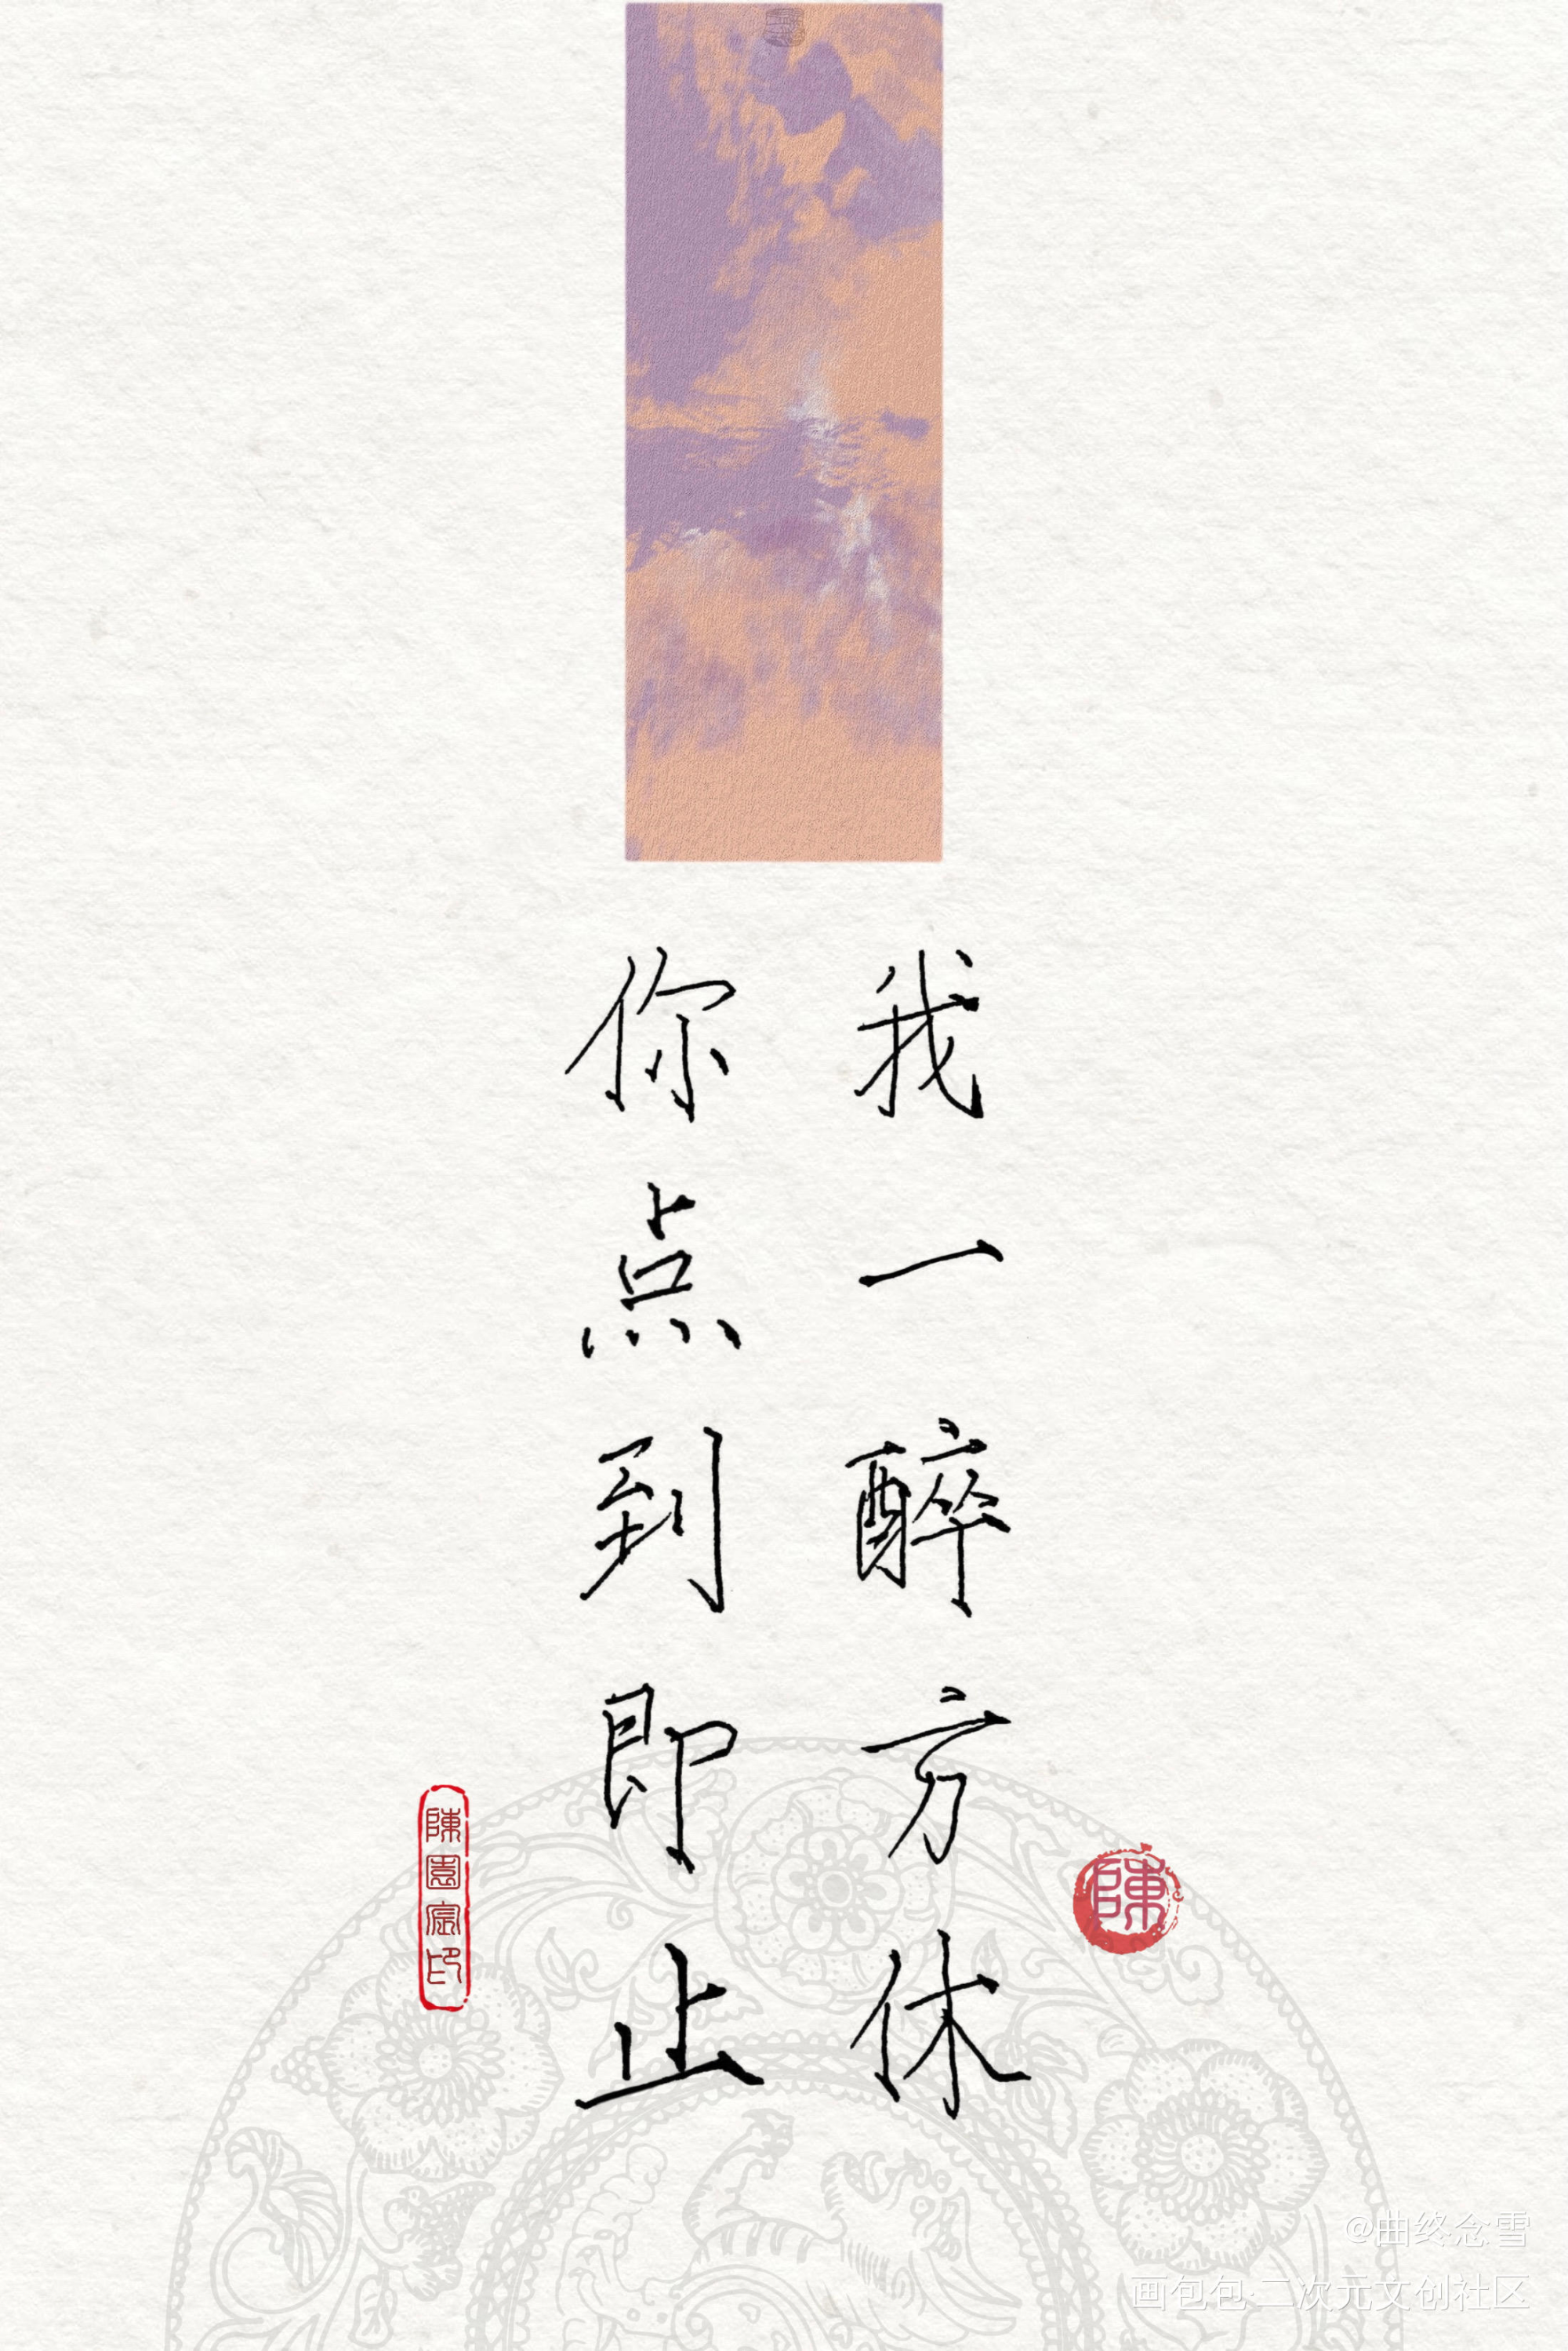 我一醉方休
你点到即止
陳
@曲终念雪
画包包·二次元文创社区